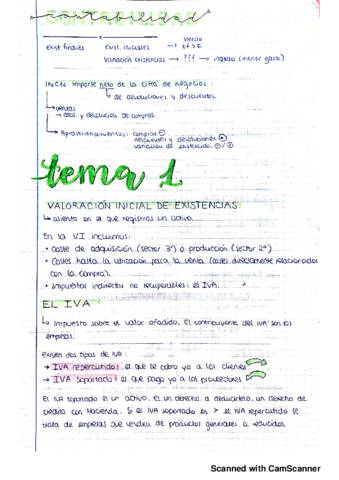 CONTABILIDAD
siendo
Exist. finales Exist. iniciales → Ef > Ei
Variación existencias → ??? → ingreso (menor gasto)
INCN: Importe neto de la cifra de negocios
↳ de devoluciones y descuentos.
↳ ventas
↳ dtos. y devolucios de compras.
↳ Aprovisionamientos: compras
descuentos y devoluciones
variación de existencias. + / -
tema 1
VALORACIÓN INICIAL DE EXISTENCIAS
↳ asiento en el que registras un activo.
En la VI incluimos:
• coste de adquisición (sector 3º) o producción (sector 2º)
• Costes hasta la ubicación para la venta (costes directamente relacionados
con la compra).
• Impuestos indirectos no recuperables: el IVA.
EL IVA
↳ Impuesto sobre el valor añadido. El contribuyente del IVA son las
empresas.
Existen dos tipos de IVA:
→ IVA repercutido: el que se cobro yo a los clientes
→ IVA soportado: el que pago yo a los proveedores
El IVA soportado es un activo. Es un derecho a deducirlo, un derecho de
crédito con Hacienda. Si el IVA soportado es > el IVA repercutido se
trata de empresas que venden de productos generales a reducidos.
Scanned with CamScanner